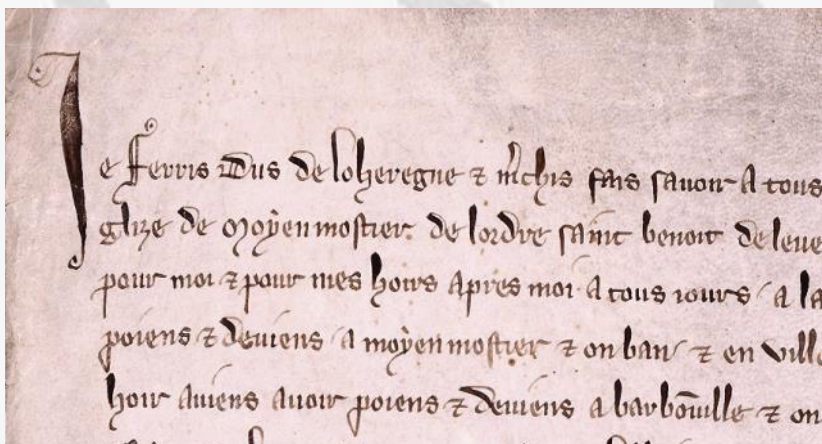 Je Ferris Dus de loheregne ⁊ m̃chis fais savoir A tous
glize de moyenmostier de lordre saint benoit de leue
pour moi ⁊ pour mes hoirs apres moi a tous iours / a la
poiens ⁊ deuiens / a moyenmostier ⁊ on ban / ⁊ en ville
hoir auiens auoir poiens ⁊ deuiens a barbōuille ⁊ on